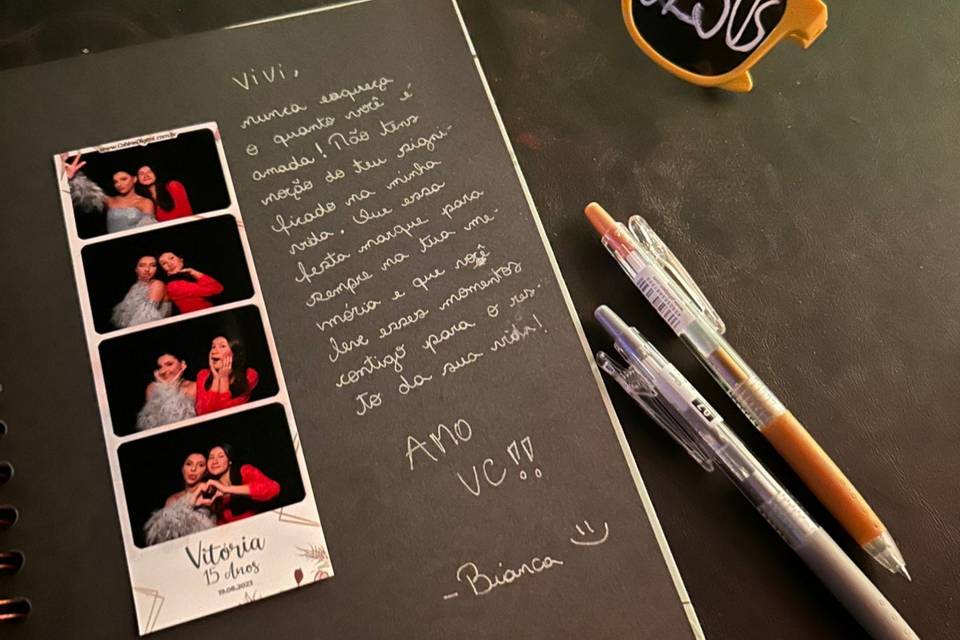 ViVi,
nunca esqueça
o quanto você é
amada! Não tens
noção do teu signi-
ficado na minha
vida. Que essa
festa marque para
sempre na tua me-
mória e que você
leve esses momentos
contigo para o res-
to da sua vida!
AMO
VC!!
- Bianca
www.CabineDigital.com.br
Vitória
15 Anos
19.08.2023
0.7